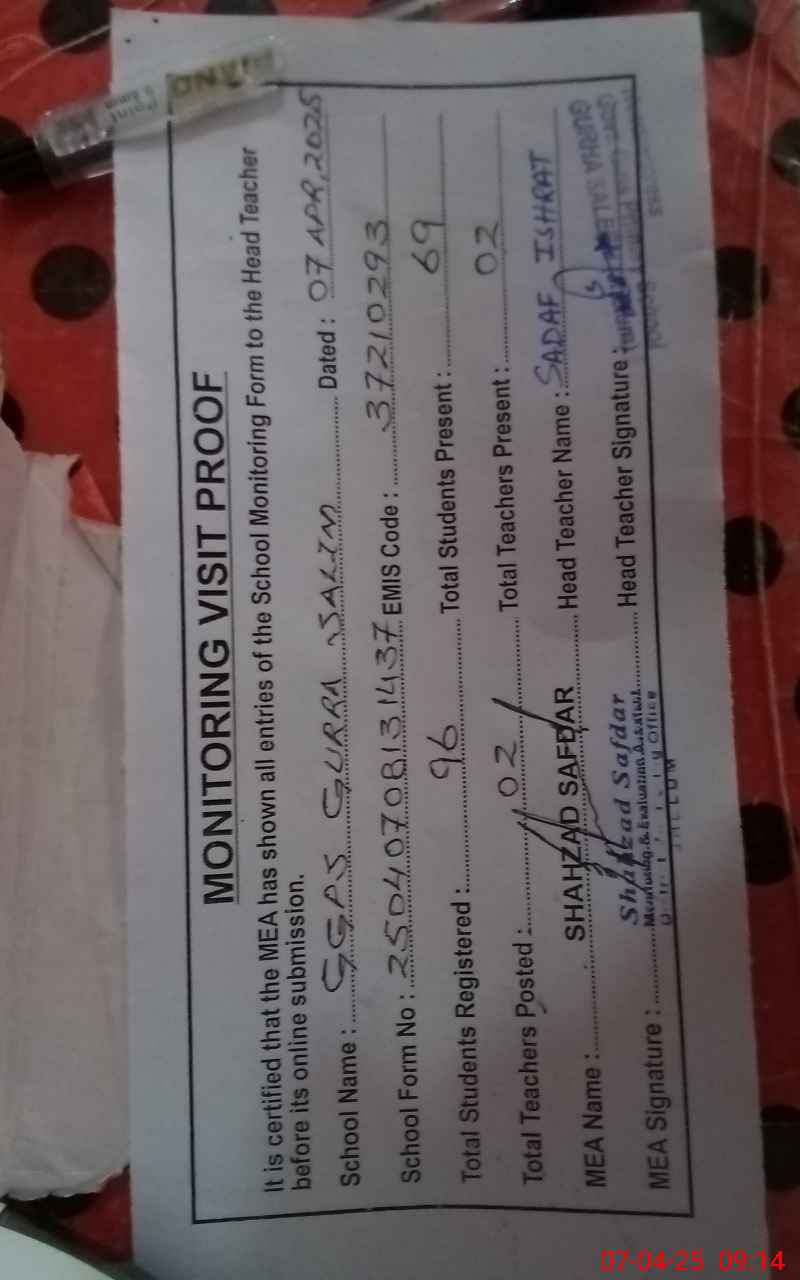 MONITORING VISIT PROOF
It is certified that the MEA has shown all entries of the School Monitoring Form to the Head Teacher
before its online submission.
School Name : GGPS GURRA SALIM Dated : 07 APR, 2025
School Form No : 25040708131437 EMIS Code : 37210293
Total Students Registered : 96 Total Students Present : 69
Total Teachers Posted : 02 Total Teachers Present : 02
MEA Name : SHAHZAD SAFDAR Head Teacher Name : SADAF ISHRAT
MEA Signature : Shahzad Safdar Head Teacher Signature :
Monitoring & Evaluation Assistant
Office
JHELUM
GURRHA SALEEM
Point
07-04-25 09:14